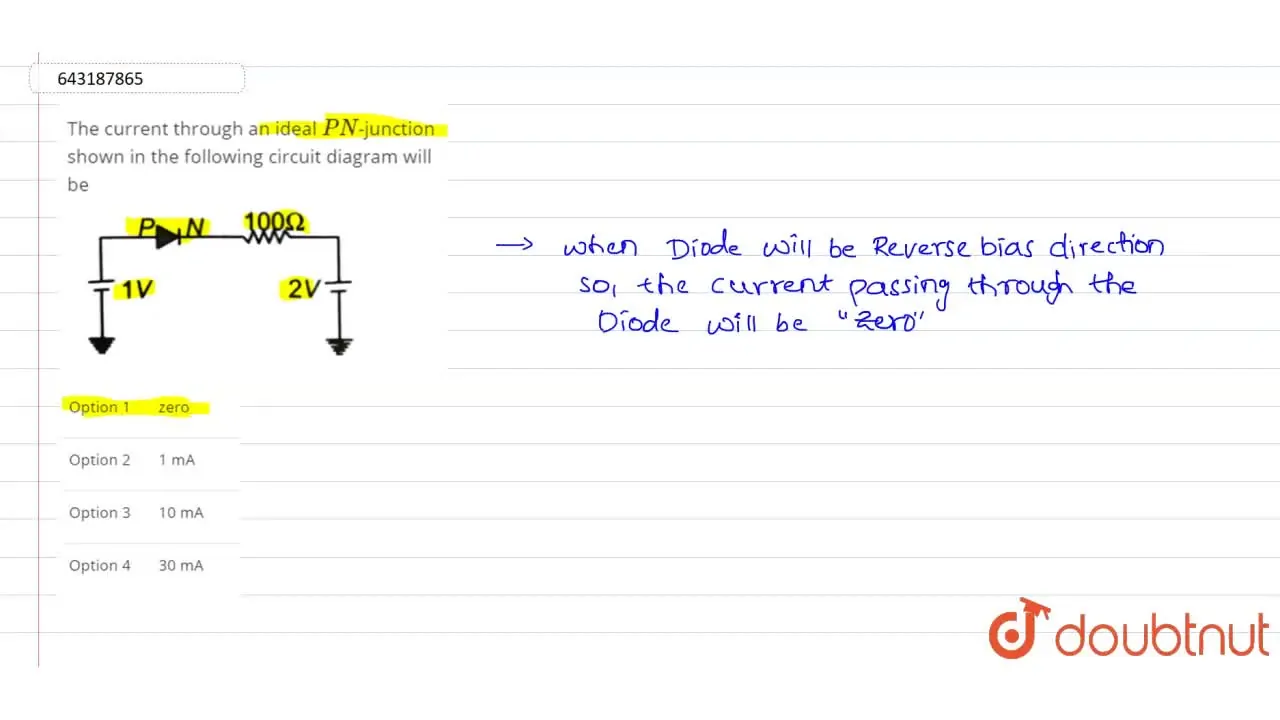 643187865
The current through an ideal PN-junction
shown in the following circuit diagram will
be
P N 100Ω
1V 2V
→ When Diode will be Reverse bias direction
so, the current passing through the
Diode will be "Zero"
Option 1 zero
Option 2 1 mA
Option 3 10 mA
Option 4 30 mA
doubtnut